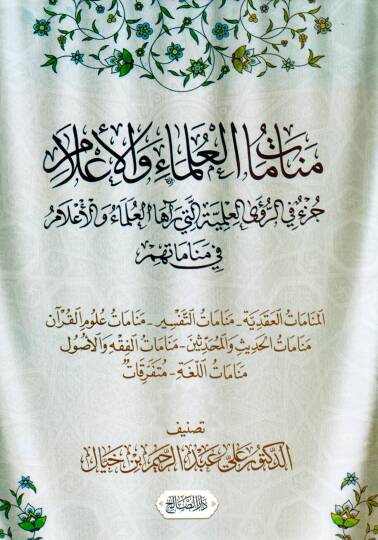 منامات العلماء والأعلام
جزء في الرؤى العلمية التي رآها العلماء والأعلام
في مناماتهم
المنامات العقدية - منامات التفسير - منامات علوم القرآن
منامات الحديث والمحدثين - منامات الفقه والأصول
منامات اللغة - متفرقات
تصنيف
الدكتور علي عبد الرحيم بن خيال
دار الصالح